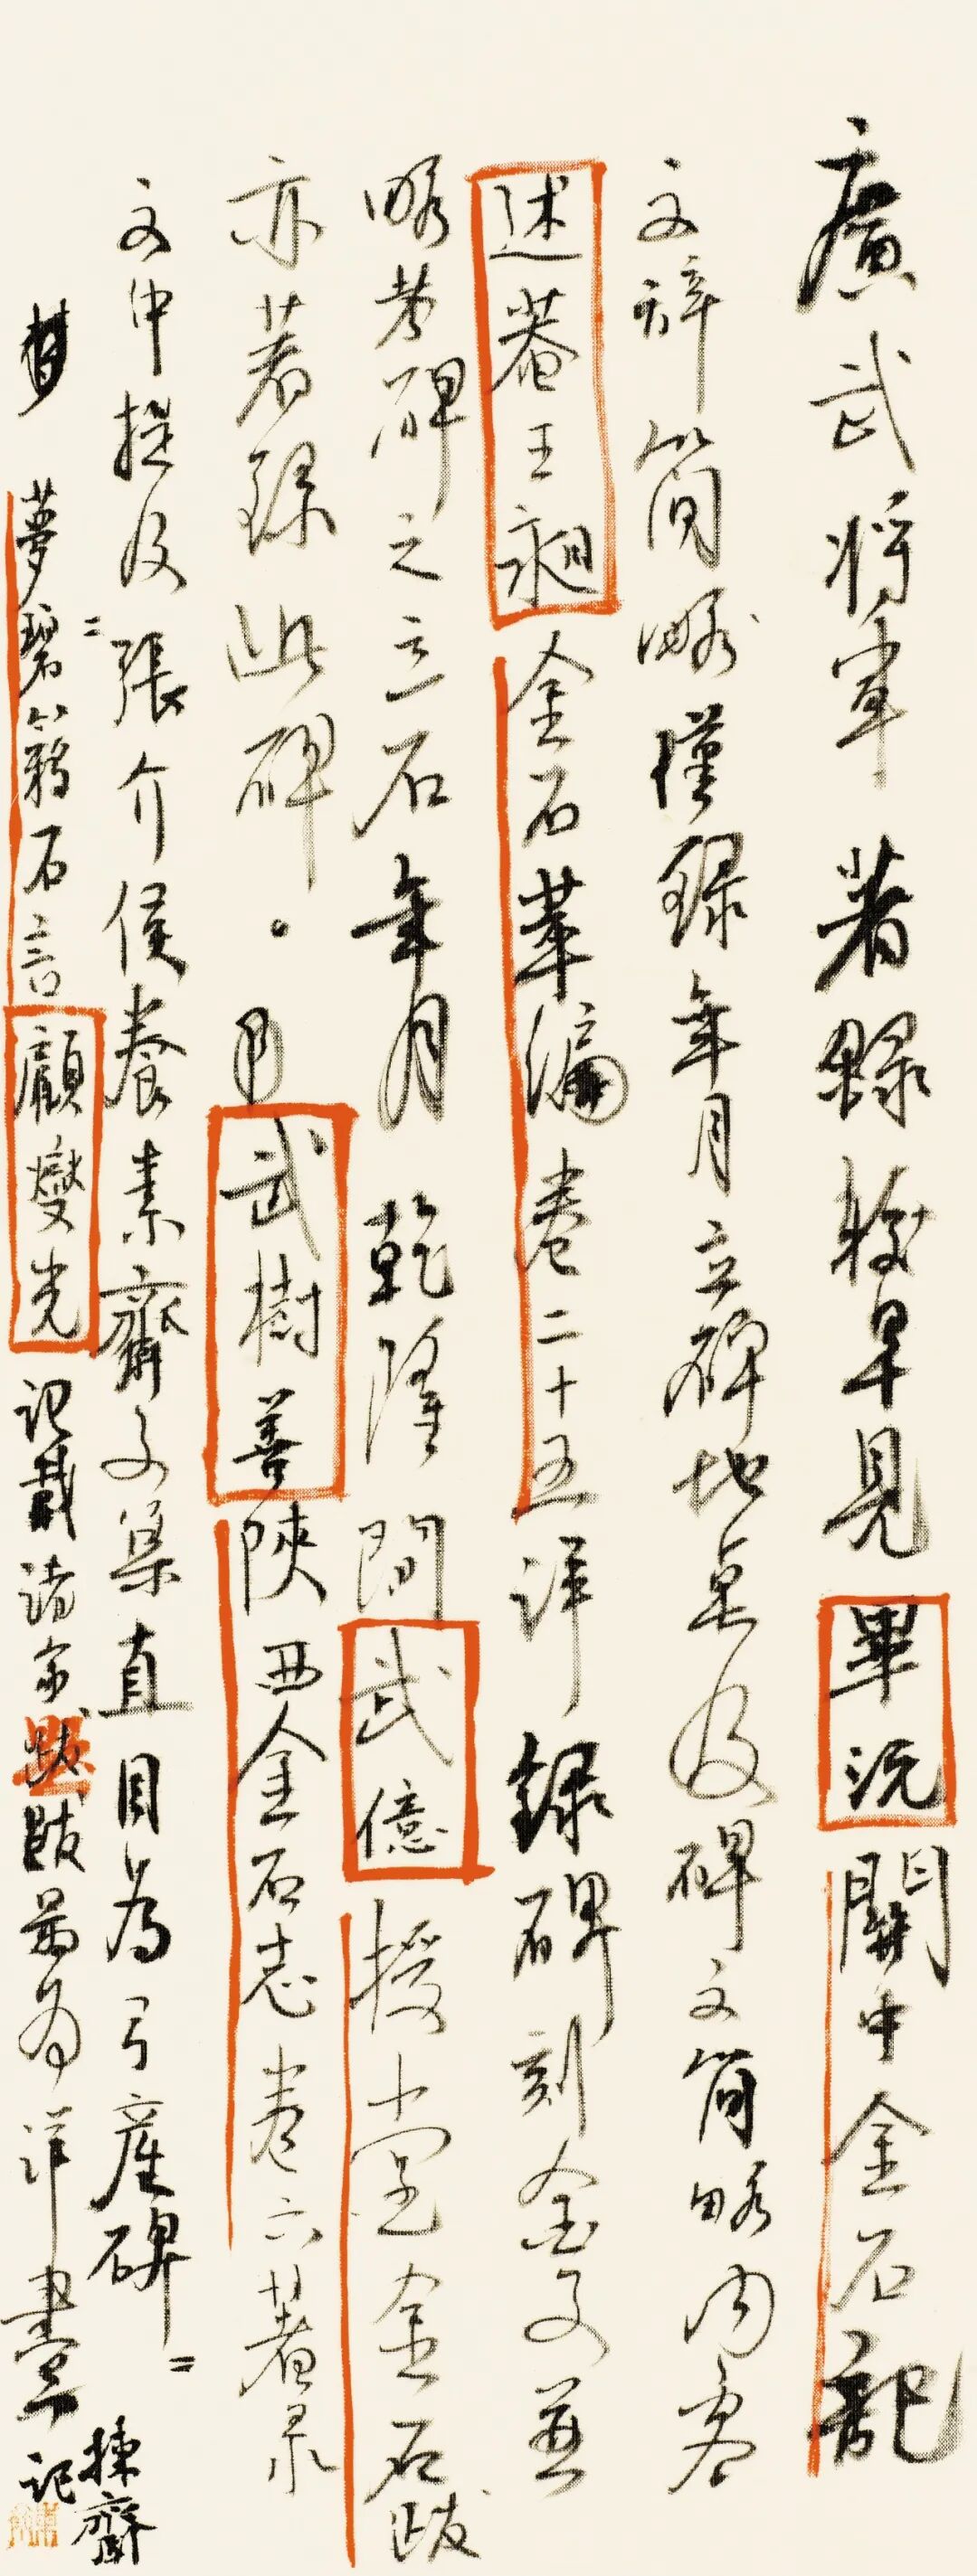 廣武將軍 著錄較早見畢沅關中金石記
文辭簡略僅錄年月立碑地點及碑文簡略內容
述菴王昶金石萃編卷二十五詳錄碑刻全文並
略考碑之立石年月 乾隆間武億授堂金石跋
亦著錄此碑。 武樹善陝西金石志卷六著录
文中提及張介侯養素齋文集直目為弓産碑
夢碧簃石言顧燮光記載諸家跋最為詳盡
棟齋記